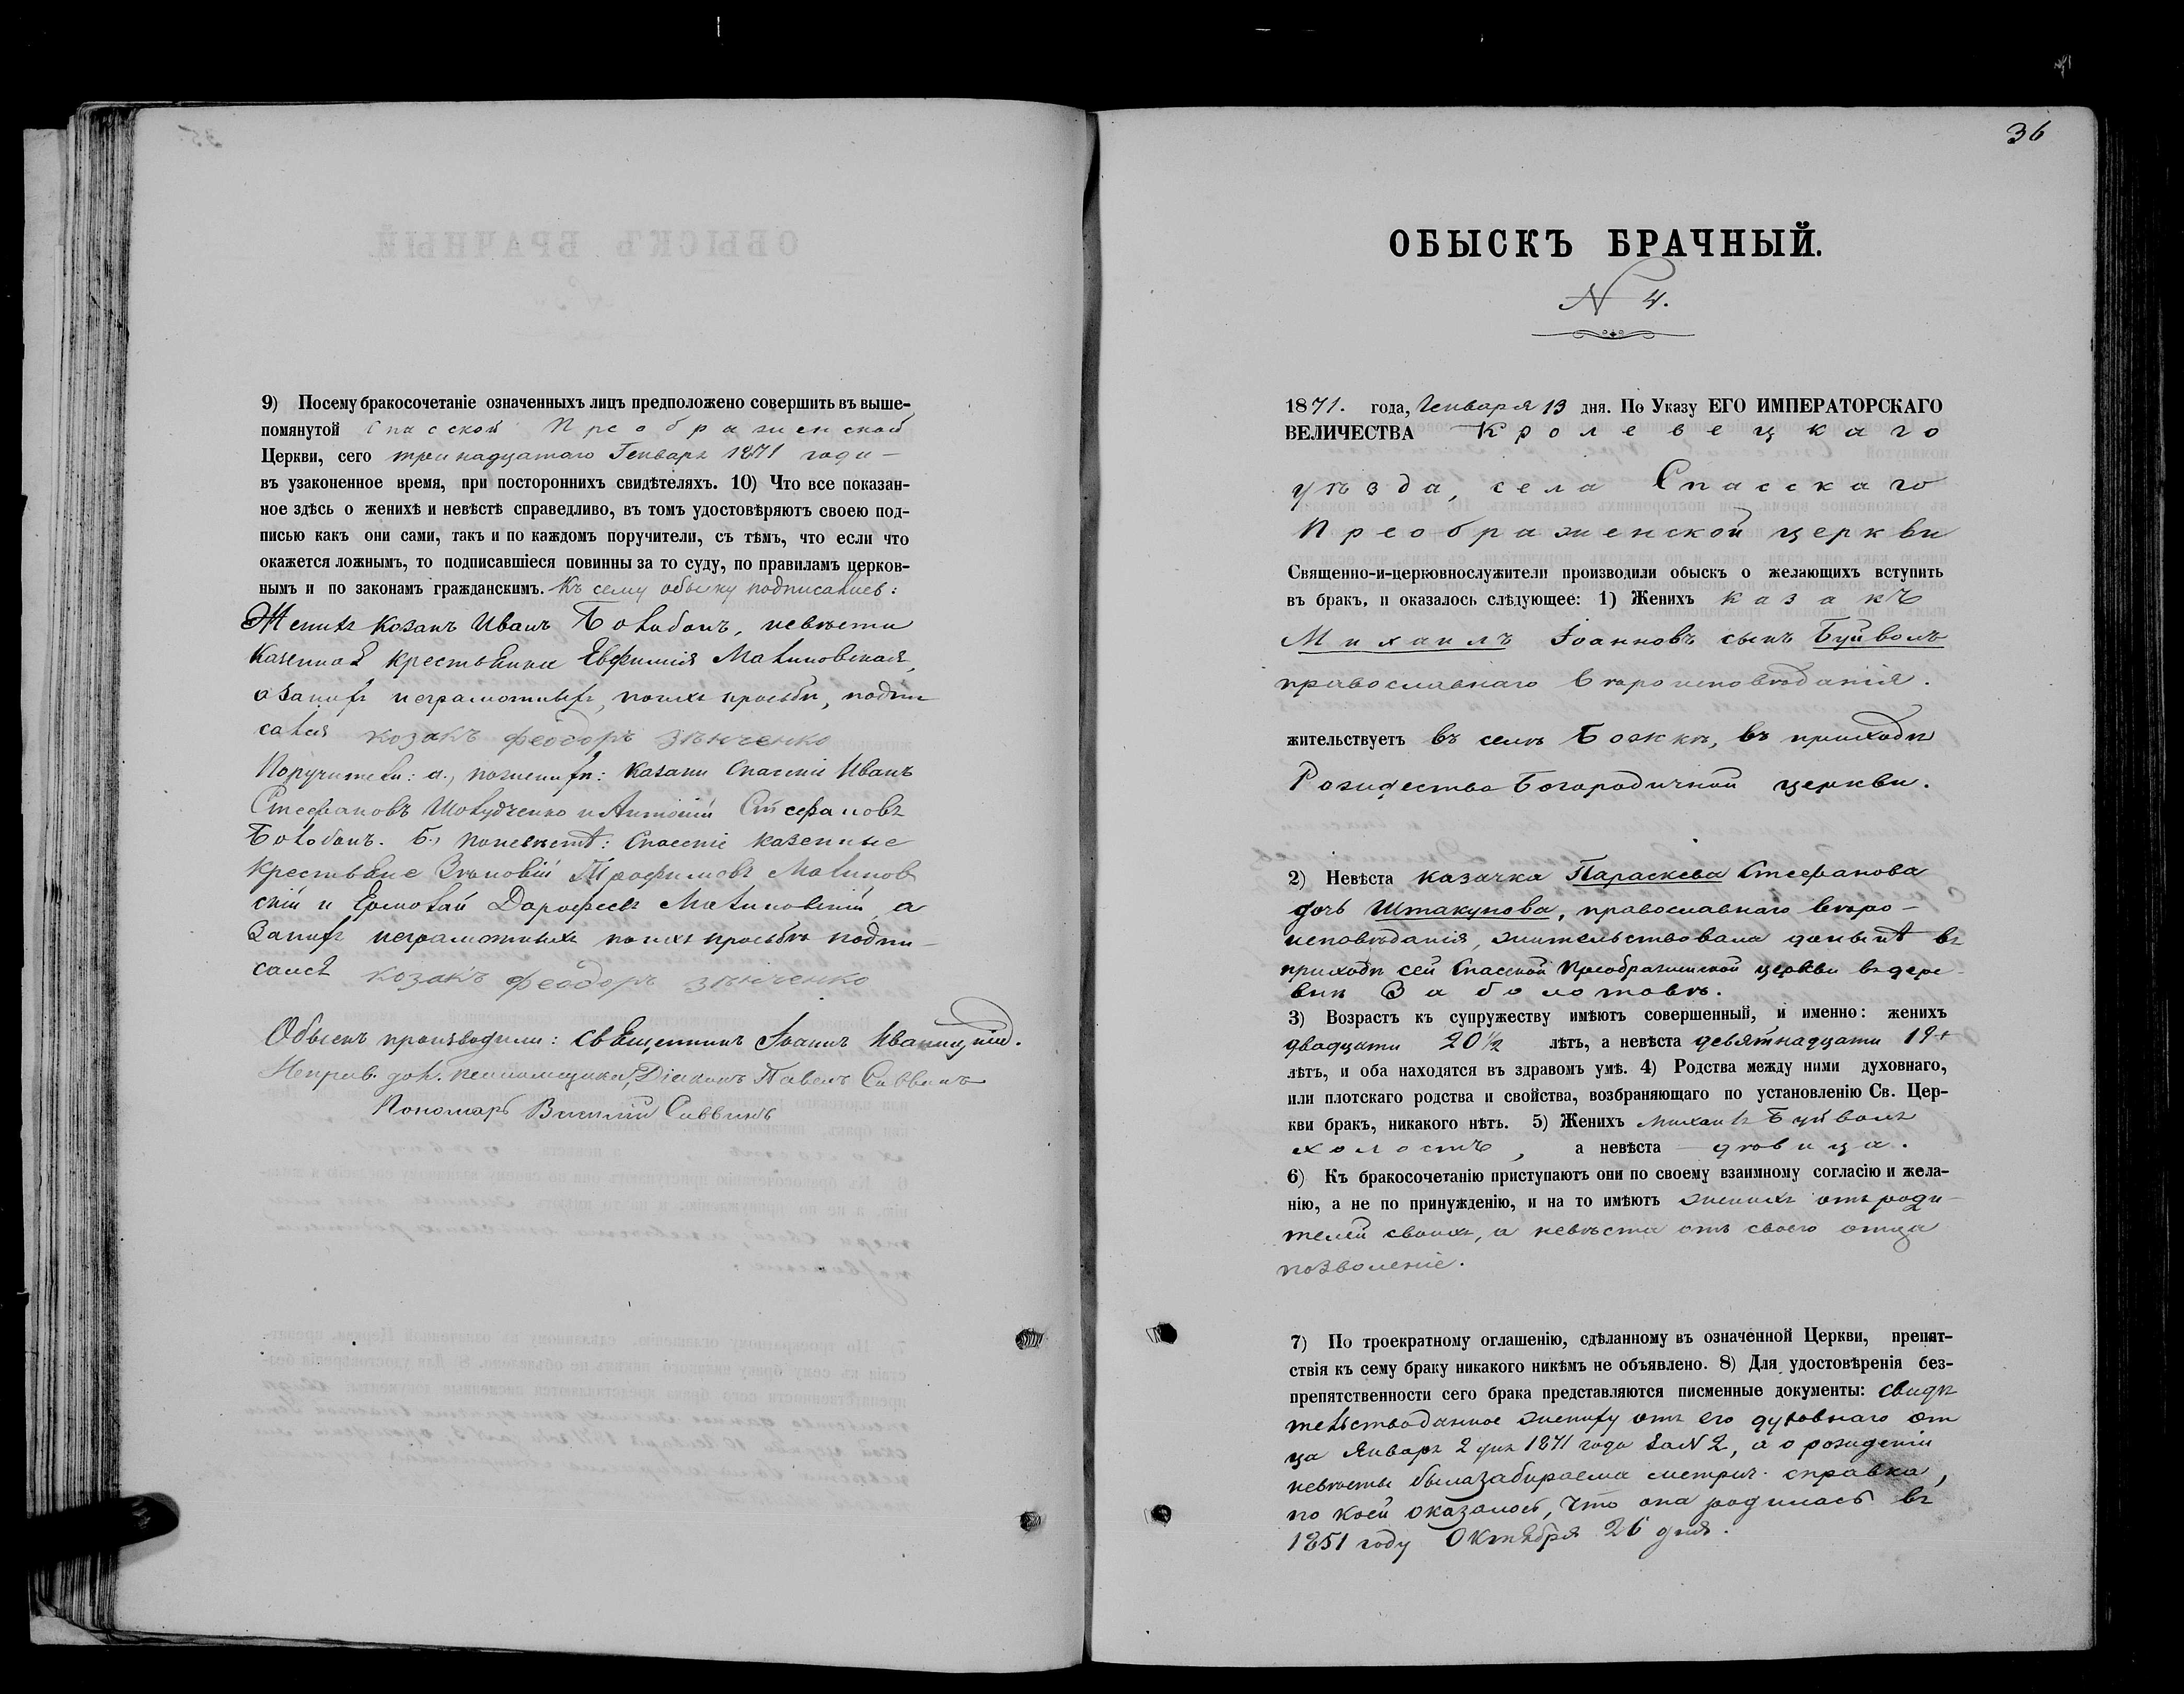 9) Посему бракосочетаніе означенныхъ лицъ предположено совершить въ выше-
помянутой Спасской Преображенской
Церкви, сего тринадцатаго Генваря 1871 года –
въ узаконенное время, при постороннихъ свидѣтеляхъ. 10) Что все показан-
ное здѣсь о женихѣ и невѣстѣ справедливо, въ томъ удостовѣряютъ своею под-
писью какъ они сами, такъ и по каждомъ поручители, съ тѣмъ, что если что
окажется ложнымъ, то подписавшіеся повинны за то суду, по правиламъ церков-
нымъ и по законамъ гражданскимъ. Къ сему обыску подписались:
Женихъ козакъ Иванъ Болобанъ, невѣста
казенная крестьянка Евфимія Малиновская,
а за нихъ неграмотныхъ, по ихъ просьбѣ, подпи
сался козакъ феодоръ зѣнченко
Поручители: а., по женихѣ: казаки Спасскіе Иванъ
Стефановъ и Антоній Стефановъ
Болобанъ. б., по невѣстѣ: Спасскіе казенные
крестьяне Зѣновій Трофимовъ Малинов
скій и Ермолай Дорофеевъ Малиновскій, а
за нихъ неграмотныхъ по ихъ просьбѣ подпи-
сался козакъ феодоръ зѣнченко
Обыскъ производили: священникъ Іоаннъ
Исправ. дол. псаломщика, Діаконъ Павелъ Саввинъ
Пономарь Василій Саввинъ
36
ОБЫСКЪ БРАЧНЫЙ.
N 4.
1871. года, Генваря 13 дня. По Указу ЕГО ИМПЕРАТОРСКАГО
ВЕЛИЧЕСТВА Кролевецкаго
уѣзда, села Спасскаго
Преображенской церкви
Священно-и-церковнослужители производили обыскъ о желающихъ вступить
въ бракъ, и оказалось слѣдующее: 1) Женихъ казакъ
Михаилъ Іоанновъ сынъ Буйволъ
православнаго вѣроисповѣданія.
жительствуетъ въ селѣ Божкѣ, въ приходѣ
Рождество Богородичной церкви.
2) Невѣста казачка Параскева Стефанова
дочь Штакунова, православнаго вѣро-
исповѣданія, жительствовала донынѣ въ
приходѣ сей Спасской Преображенской церкви въ дере-
внѣ Заболотовѣ.
3) Возрастъ къ супружеству имѣютъ совершенный, и именно: женихъ
двадцати 20½ лѣтъ, а невѣста девятнадцати 19+
лѣтъ, и оба находятся въ здравомъ умѣ. 4) Родства между ними духовнаго,
или плотскаго родства и свойства, возбраняющаго по установленію Св. Цер-
кви бракъ, никакого нѣтъ. 5) Женихъ Михаилъ Буйволъ
холостъ, а невѣста дѣвица.
6) Къ бракосочетанію приступаютъ они по своему взаимному согласію и жела-
нію, а не по принужденію, и на то имѣютъ женихъ отъ роди-
телей своихъ, а невѣста отъ своего отца
позволеніе.
7) По троекратному оглашенію, сдѣланному въ означенной Церкви, препят-
ствія къ сему браку никакого никѣмъ не объявлено. 8) Для удостовѣренія без-
препятственности сего брака представляются писменные документы: свидѣ
тельство данное жениху отъ его духовнаго от
ца Января 2 дня 1871 года за N 2, а о рожденіи
невѣсты была забираема метрич. справка,
по коей оказалось, что она родилась въ
1851 году Октября 26 дня.